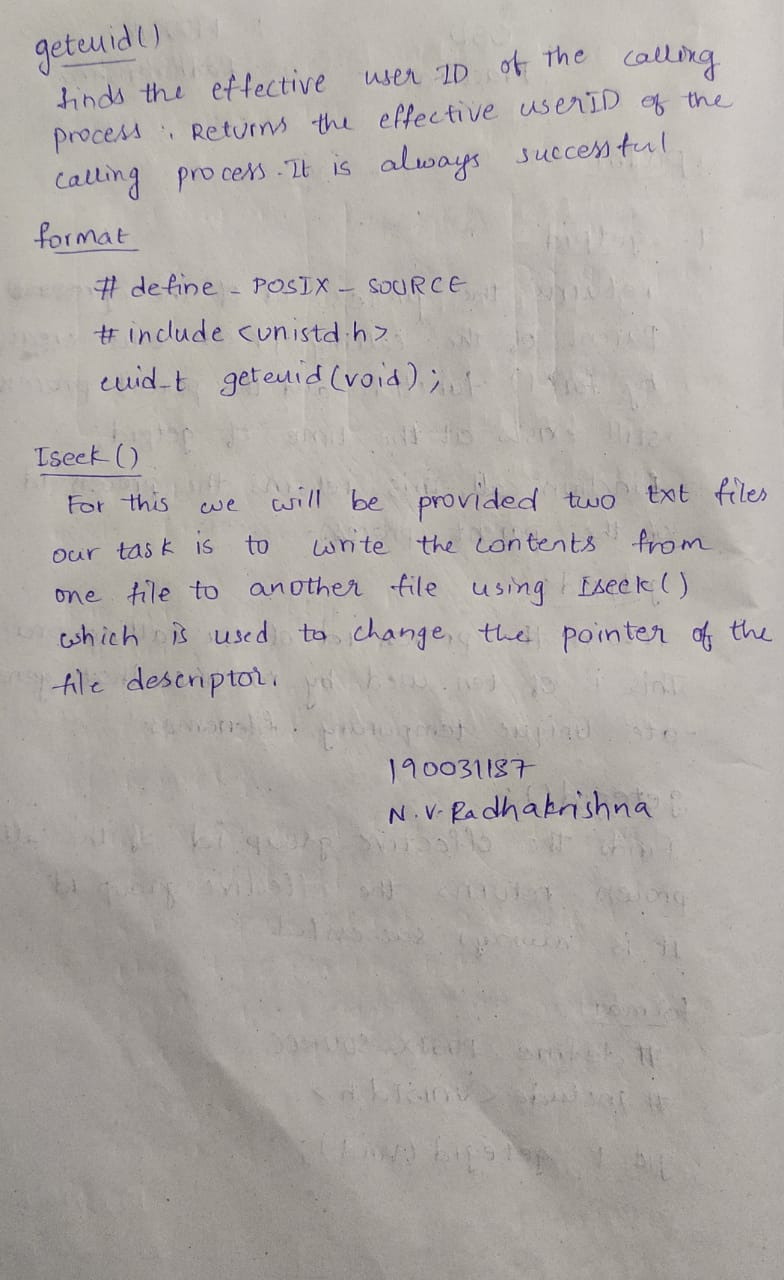 geteuid()
finds the effective user ID of the calling
process. Returns the effective userID of the
calling process. It is always successful
format
# define _ POSIX _ SOURCE
# include <unistd.h>
euid_t geteuid(void);
Iseek()
For this we will be provided two txt files
our task is to write the contents from
one file to another file using Iseek()
which is used to change the pointer of the
file descriptor.
190031187
N.V.Radhakrishna